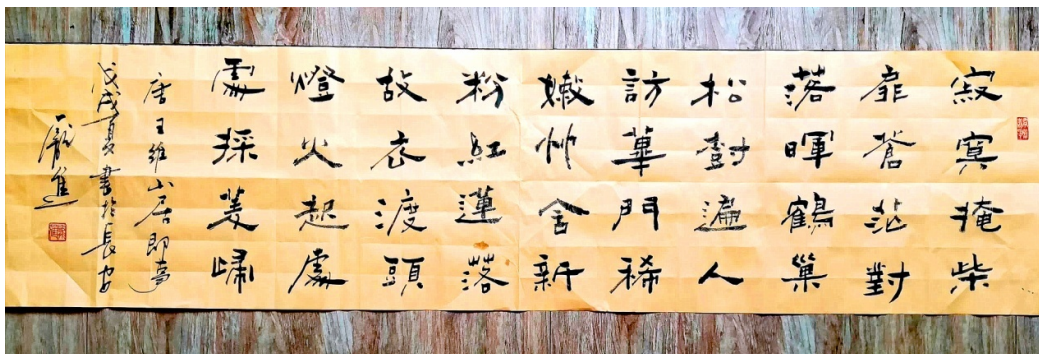 寂寞掩柴
扉蒼茫對
落暉鶴巢
松樹遍人
訪蓽門稀
嫩竹含新
粉紅蓮落
故衣渡頭
燈火起處
處採菱歸
唐王維山居即事
戊戌夏書於長安
龐進